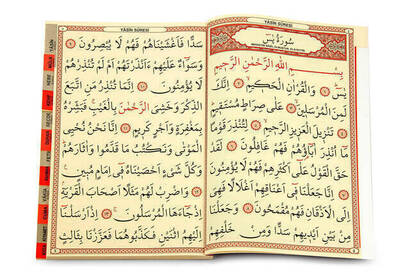 YÂSİN SÛRESİ
سُورَةُ يٰسٓ
بِسْمِ اللّٰهِ الرَّحْمٰنِ الرَّحِيمِ
يٰسٓ ﴿١﴾ وَالْقُرْاٰنِ الْحَكِيمِ ﴿٢﴾ اِنَّكَ
لَمِنَ الْمُرْسَلِينَ ﴿٣﴾ عَلٰى صِرَاطٍ مُسْتَقِيمٍ
﴿٤﴾ تَنْزِيلَ الْعَزِيزِ الرَّحِيمِ ﴿٥﴾ لِتُنْذِرَ قَوْمًا
مَٓا اُنْذِرَ اٰبَٓاؤُ۬هُمْ فَهُمْ غَافِلُونَ ﴿٦﴾ لَقَدْ
حَقَّ الْقَوْلُ عَلٰٓى اَكْثَرِهِمْ فَهُمْ لَا يُؤْمِنُونَ
﴿٧﴾ اِنَّا جَعَلْنَا فِٓي اَعْنَاقِهِمْ اَغْلَالًا فَهِيَ
اِلَى الْاَذْقَانِ فَهُمْ مُقْمَحُونَ ﴿٨﴾ وَجَعَلْنَا
مِنْ بَيْنِ اَيْدِيهِمْ سَدًّا وَمِنْ خَلْفِهِمْ
YÂSİN SÛRESİ
سَدًّا فَاَغْشَيْنَاهُمْ فَهُمْ لَا يُبْصِرُونَ ﴿٩﴾
وَسَوَٓاءٌ عَلَيْهِمْ ءَاَنْذَرْتَهُمْ اَمْ لَمْ تُنْذِرْهُمْ
لَا يُؤْمِنُونَ ﴿١٠﴾ اِنَّمَا تُنْذِرُ مَنِ اتَّبَعَ
الذِّكْرَ وَخَشِيَ الرَّحْمٰنَ بِالْغَيْبِ فَبَشِّرْهُ
بِمَغْفِرَةٍ وَاَجْرٍ كَرِيمٍ ﴿١١﴾ اِنَّا نَحْنُ نُحْيِ
الْمَوْتٰى وَنَكْتُبُ مَا قَدَّمُوا وَاٰثَارَهُمْ
وَكُلَّ شَيْءٍ اَحْصَيْنَاهُ فِٓي اِمَامٍ مُبِينٍ
﴿١٢﴾ وَاضْرِبْ لَهُمْ مَثَلًا اَصْحَابَ الْقَرْيَةِ
اِذْ جَٓاءَهَا الْمُرْسَلُونَ ﴿١٣﴾ اِذْ اَرْسَلْنَٓا
اِلَيْهِمُ اثْنَيْنِ فَكَذَّبُوهُمَا فَعَزَّزْنَا بِثَالِثٍ
YÂSİN
MÜLK
NEBE